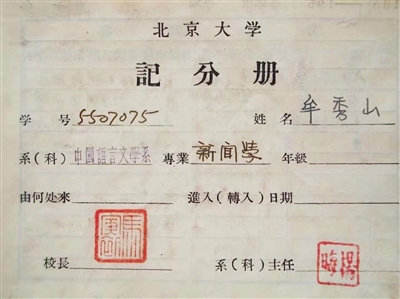 北京大学
記分册
学 号 5507075 姓 名 牟秀山
系(科) 中國語言文學系 專業 新聞學 年級
由何处來 進入(轉入)日期
校長 系(科)主任 楊晦